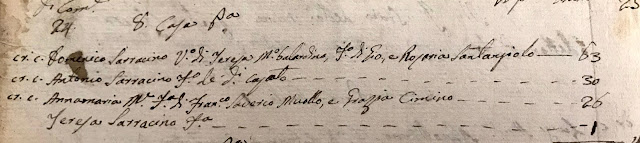 24. 8. Casa Pa
cr. c. Domenico Sarracino Vo. di Teresa Mobalardina, Fo. di Gio, e Rosaria Santangiolo — 63
cr. c. Antonio Sarracino Fo. de Di Casato — 30
cr. c. Annamaria Me. Fa. di Franco. Saverio Muollo, e Grazia Cimino — 26
Teresa Sarracino Fa. — 1